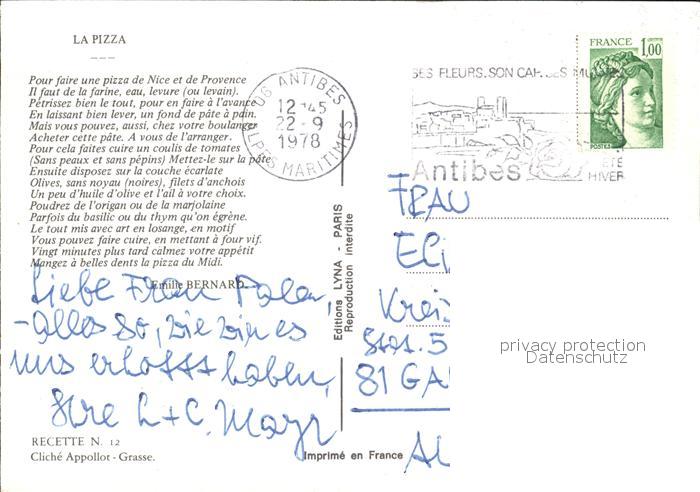 LA PIZZA
Pour faire une pizza de Nice et de Provence
Il faut de la farine, eau, levure (ou levain).
Pétrissez bien le tout, pour en faire à l'avance
En laissant bien lever, un fond de pâte à pain.
Mais vous pouvez, aussi, chez votre boulanger
Acheter cette pâte. A vous de l'arranger.
Pour cela faites cuire un coulis de tomates
(Sans peaux et sans pépins) Mettez-le sur la pâte
Ensuite disposez sur la couche écarlate
Olives, sans noyau (noires), filets d'anchois
Un peu d'huile d'olive et l'ail à votre choix.
Poudrez de l'origan ou de la marjolaine
Parfois du basilic ou du thym qu'on égrène.
Le tout mis avec art en losange, en motif
Vous pouvez faire cuire, en mettant à four vif.
Vingt minutes plus tard calmez votre appétit
Mangez à belles dents la pizza du Midi.
Emilie BERNARD
Liebe Frau
- alles so, wie wir es
uns erhofft haben,
Ihre L+C. Mayr
RECETTE N. 12
Cliché Appollot - Grasse.
06 ANTIBES
12 45
22-9
1978
ALPES MARITIMES
Editions LYNA - PARIS
Reproduction interdite
Imprimé en France
SES FLEURS. SON
Antibes
ÉTÉ
HIVER
FRANCE 1,00
POSTES
FRAU
81 GA
privacy protection
Datenschutz